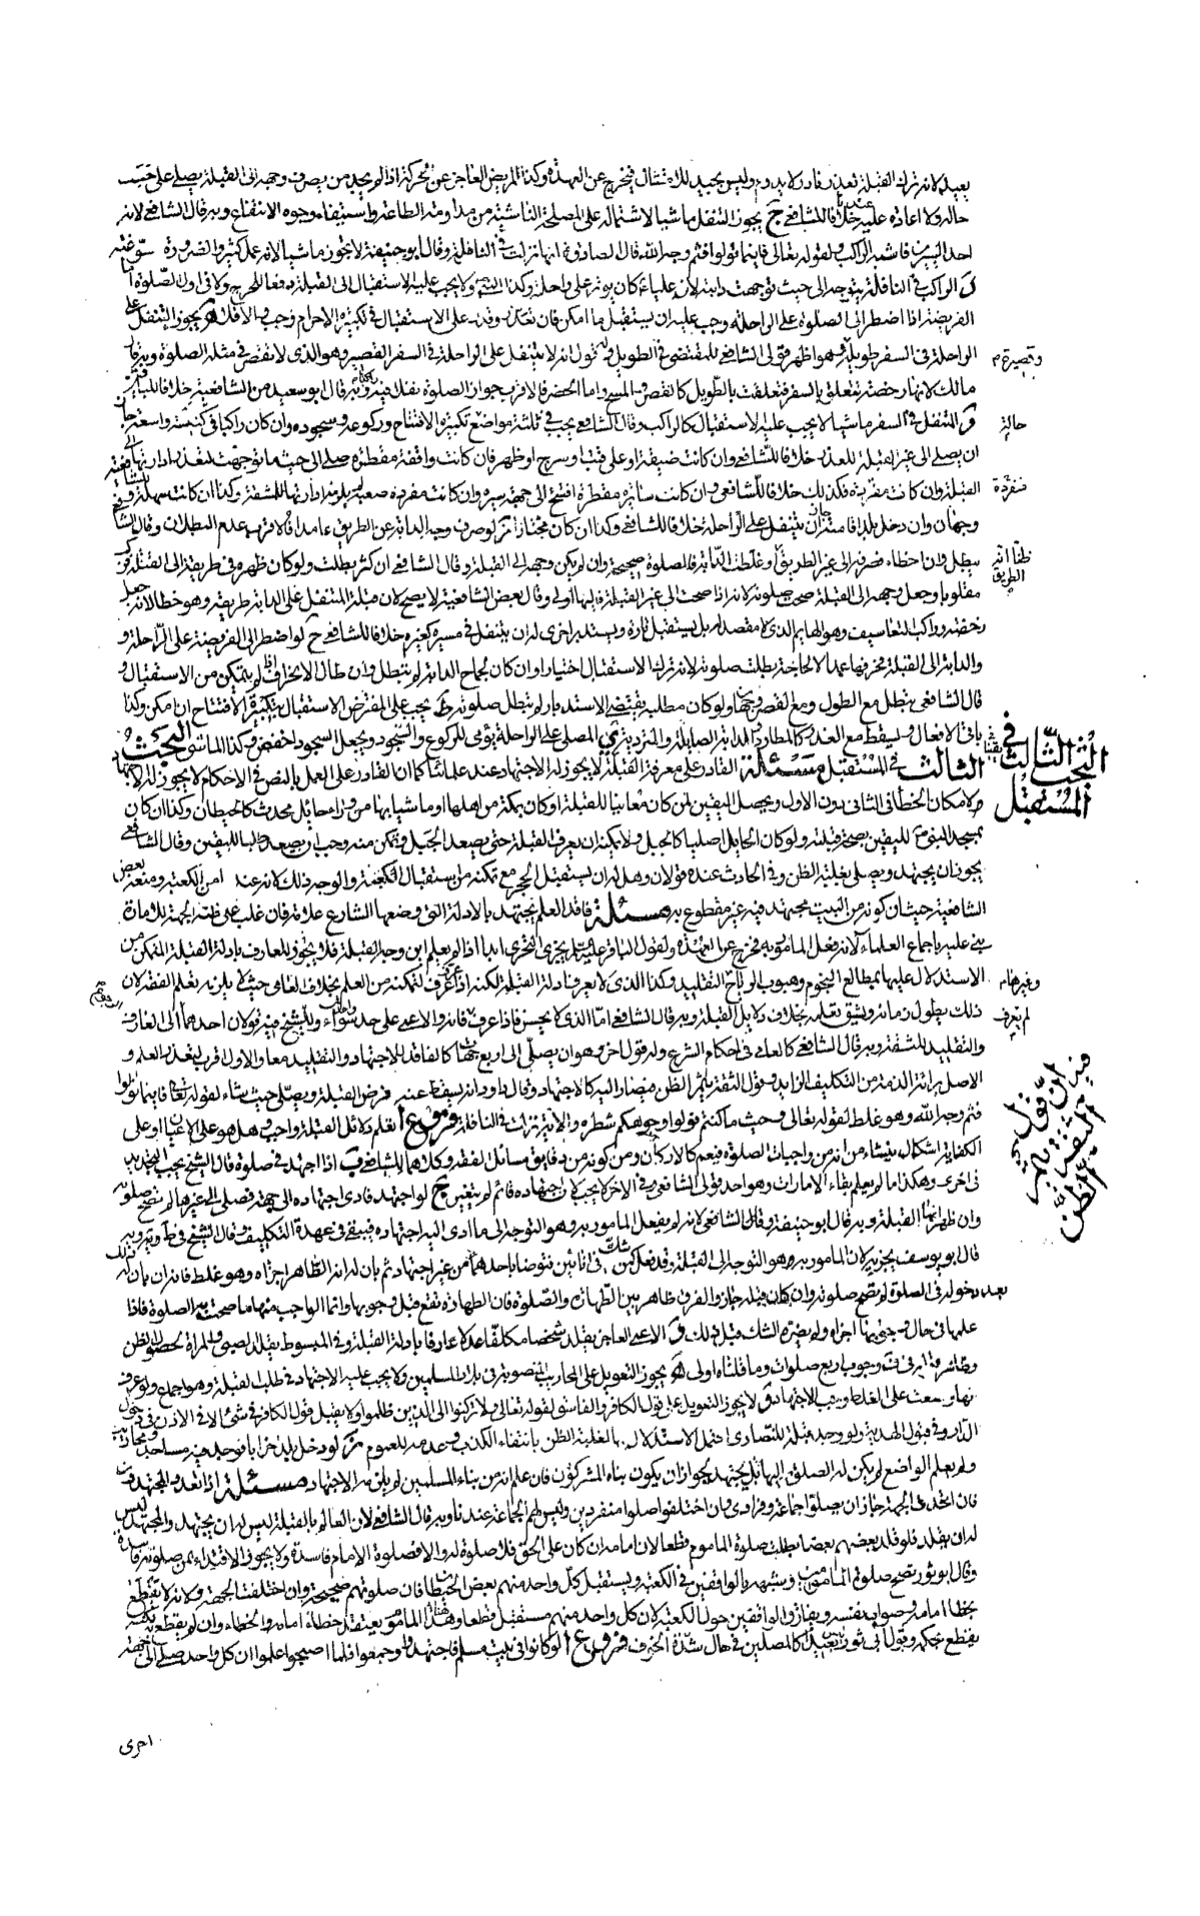 حاله ولا اعادة عليه خلافا للشافعي ج يجوز التنفل ماشيا لاشتماله على المصلحة الناشئة من مداومة الطاعة واستيفاء وجوه الانتفاع وبه قال الشافعي لانه
احد السيرين فاشبه الراكب ولقوله تعالى فاينما تولوا فثم وجه الله قال الصادق ع انها نزلت في النافلة وقال ابو حنيفة لا يجوز ماشيا لانه عمل كثير والضرورة سوغته
الراكب في النافلة يتوجه الى حيث توجهت دابته لان عليا ع كان يوتر على راحلته ولا يجب عليه الاستقبال الى القبلة دفعا للحرج ولا في اول الصلوة اما
الفريضة اذا اضطر الى الصلوة على الراحلة وجب عليه ان يستقبل ما امكن فان تعذر وقدر على الاستقبال في تكبيرة الاحرام وجب والا فلا يجوز التنفل على
الراحلة في السفر طويله وهو اظهر قولي الشافعي للمقتضى في الطويل وله قول انه لا يتنفل على الراحلة في السفر القصير وهو الذي لا تقصر في مثله الصلوة وبه قال
وقصيره م
مالك لانها رخصة تتعلق بالسفر فتعلقت بالطويل كالقصر والمسح واما الحضر فالاقرب جواز الصلوة نفلا فيه وبه قال ابو سعيد من الشافعية خلافا للباقين
المتنفل في السفر ماشيا لا يجب عليه الاستقبال كالراكب وقال الشافعي يجب في ثلثة مواضع تكبيرة الافتتاح وركوعه وسجوده وان كان راكبا في كنيسة واسعة جاز
حالة
ان يصلي الى غير القبلة للعذر خلافا للشافعي وان كانت ضيقة او على قتب او سرج او ظهر فان كانت واقفة مقطرة صلى الى حيث ما توجهت لتعذر ادارتها الى
القبلة وان كانت منفردة فكذلك خلافا للشافعي وان كانت سائرة مقطرة افتتح الى جهة سيره وان كانت مفردة صعبة لم يلزمه ادارتها للمشقة وكذا ان كانت سهلة
منفردة
وجهان وان دخل بلد اقامته جاز ان يتنفل على الراحلة خلافا للشافعي وكذا ان كان مجتازا لو صرف وجه الدابة عن الطريق عامدا فالاقرب عدم البطلان وقال الشافعي
يبطل وان اخطاء فصرفها الى غير الطريق او غلطت الدابة فالصلوة صحيحة وان لم يكن وجهه الى القبلة وقال الشافعي ان كثر بطلت ولو كان ظهره في طريقه الى القبلة
ظنا انه
الطريق
مقلوبا وجعل وجهه الى القبلة صحت صلوته لانه اذا صحت الى غير القبلة فاليها اولى وقال بعض الشافعية لا يصح لان قبلة المتنفل على الدابة طريقه وهو خطا لانه جعل
رخصة وراكب التعاسيف وهو الهايم الذي لا مقصد له بل يستقبل تارة ويستدبر اخرى له ان يتنفل في مسيره كغيره خلافا للشافعي لو اضطر الى الفريضة على الراحلة و
والدابة الى القبلة فحرفها عمدا لا لحاجة بطلت صلوته لانه ترك الاستقبال اختيارا وان كان لجماح الدابة لم تبطل وان طال الانحراف اذا لم يتمكن من الاستقبال و
قال الشافعي يبطل مع الطول ومع القصر وجهان ولو كان مطلبه يقتضي الاستدبار لم تبطل صلوته يجب على المفترض الاستقبال بتكبيرة الافتتاح ان امكن وكذا
باقي الافعال ويسقط مع العذر كالمطارد والدابة الصايلة والمتردية المصلي على الراحلة يؤمي للركوع والسجود ويجعل السجود اخفض وكذا الماشي البحث
الثالث في المستقبل مسئلة القادر على معرفة القبلة لا يجوز له الاجتهاد عند علمائنا كما ان القادر على العمل بالنص في الاحكام لا يجوز له الاجتهاد
البحث الثالث في المستقبل
ولامكان الخطا في الثاني دون الاول ويحصل اليقين لمن كان معاينا للقبلة او كان بمكة من اهلها او ماشيا بها من وراء حائل محدث كالحيطان وكذا ان كان
بمسجد النبي ص لليقين بصحة قبلته ولو كان الحايل اصليا كالجبل ولا يمكنه ان يعرف القبلة حتى يصعد الجبل وتمكن منه وجب ان يصعد طلبا لليقين وقال الشافعي
يجوز ان يجتهد ويصلي بغلبة الظن وفي الحادث عنده قولان وهل له ان يستقبل الحجر مع تمكنه من استقبال الكعبة الوجه ذلك لانه عندنا من الكعبة ومنعه بعض
الشافعية حيث ان كونه من البيت مجتهد فيه غير مقطوع به مسئلة فاقد العلم يجتهد بالادلة التي وضعها الشارع علامة فان غلب على ظنه الجهة للامارة
بنى عليه باجماع العلماء لانه فعل المامور به فيخرج عن العهدة ولقول الباقر عليه السلم يجزي التحري ابدا اذا لم يعلم اين وجه القبلة فلا يجوز للعارف بادلة القبلة المتمكن من
الاستدلال عليها بمطالع النجوم وهبوب الرياح التقليد وكذا الذي لا يعرف ادلة القبلة لكنه اذا عرف لتمكنه من العلم بخلاف العامي حيث لا يلزمه تعلم الفقه لان
وغيرها م
ذلك يطول زمانه ويشق تعلمه بخلاف دلايل القبلة وبه قال الشافعي اما الذي لا يحسن فاذا عرف فانه والاعمى على حد سواء وللشيخ فيه قولان احدهما الى العارف
لم يعرف
والتقليد للمشقة وبه قال الشافعي كالعامي في احكام الشرع وله قول اخر وهو ان يصلي الى اربع جهات كالفاقد للاجتهاد والتقليد معا والاول اقرب لتعذر العلم و
الاصل براءة الذمة من التكليف الزايد وقول الثقة يثمر الظن فيصار اليه كالاجتهاد وقال داود انه يسقط عنه فرض القبلة ويصلي حيث شاء لقوله تعالى فاينما تولوا
فيه ان قول الثقة يثمر الظن
فثم وجه الله وهو غلط لقوله تعالى وحيث ما كنتم فولوا وجوهكم شطره والاية نزلت في النافلة فروع ا تعلم دلائل القبلة واجب وهل هو على الاعيان او على
الكفاية اشكال ينشاء من انه من واجبات الصلوة فيعم كالاركان ومن كونه من دقايق مسائل الفقه وكلاهما للشافعي ب اذا اجتهد في صلوة قال الشيخ يجب التجديد
في اخرى وهكذا ما لم يعلم بقاء الامارات وهو احد قولي الشافعي وفي الاخر لا يجب لان اجتهاده قائم لم يتغير ج لو اجتهد فادى اجتهاده الى جهة فصلى الى غيرها لم تصح صلوته
وان ظهر انها القبلة وبه قال ابو حنيفة وقال الشافعي لانه لم يفعل المامور به وهو التوجه الى ما ادى اليه اجتهاده فيبقى في عهدة التكليف وقال الشيخ في ط يجزيه وبه
قال ابو يوسف يجزيه لان المامور به هو التوجه الى القبلة وقد فعل كمن شك في اناءين فتوضا باحدهما من غير اجتهاد ثم بان له انه الطاهر اجزاه وهو غلط فانه ان بان له ذلك
بعد دخوله في الصلوة لم تصح صلوته وان كان قبله جاز والفرق ظاهر بين الطهارة والصلوة فان الطهارة تقع قبل وجوبها وانما الواجب منها ما صحت به الصلوة فاذا
علمها في حال وجوبها اجزاه ولم يضره الشك قبل ذلك الاعمى العاجز يقلد شخصا مكلفا عدلا عارفا بادلة القبلة وفي المبسوط يقلد الصبي والمراة لحصول الظن
في وجوب اربع صلوات وما قلناه اولى يجوز التعويل على المحاريب المنصوبة في بلاد المسلمين ولا يجب عليه الاجتهاد في طلب القبلة وهو اجماع ولو عرف
على الغلط وجب الاجتهاد لا يجوز التعويل على قول الكافر والفاسق لقوله تعالى ولا تركنوا الى الذين ظلموا ولا يقبل قول الكافر في شئ الا في الاذن في دخول
الدار وفي قبول الهدية ولو وجد قبلة للنصارى احتمل الاستدلال بها لغلبة الظن بانتفاء الكذب وعدمه للعموم لو دخل بلدا خرابا فوجد فيه مساجد ومحاريب
ولم يعلم الواضع لم يكن له الصلوة اليها بل يجتهد لجواز ان يكون بناه المشركون فان علم انه من بناء المسلمين لم يلزمه الاجتهاد مسئلة اذا تعدد المجتهدون
فان اتحدت الجهة جاز ان يصلوا جماعة وفرادى وان اختلفوا صلوا منفردين وليس لهم الجماعة عندنا وبه قال الشافعي لان العالم بالقبلة ليس له ان يجتهد والمجتهد ليس
له ان يقلد فلو قلد بعضهم بعضا بطلت صلوة الماموم قطعا لان امامه ان كان على الحق فلا صلوة له والا فصلوة الامام فاسدة ولا يجوز الاقتداء بمن صلوته فاسدة
وقال ابو ثور تصح صلوة المامومين ويشبهه بالواقفين في الكعبة ويستقبل كل واحد منهم بعض الحيطان فان صلوتهم صحيحة وان اختلفت الجهة ولانه لا يقطع
بخطا امامه وصواب نفسه ويفارق الواقفين حول الكعبة لان كل واحد منهم مستقبل قطعا وهنا الماموم يعتقد خطاء امامه والخطاء وان لم يقطع به لكنه
يقطع بحكمه وقول ابي ثور ليس بعيدا كالمصلين في حال شدة الخوف فروع ا لو كانوا في بيت مظلم فاجتهدوا وجمعوا فلما اصبحوا علموا ان كل واحد صلى الى جهة
اخرى